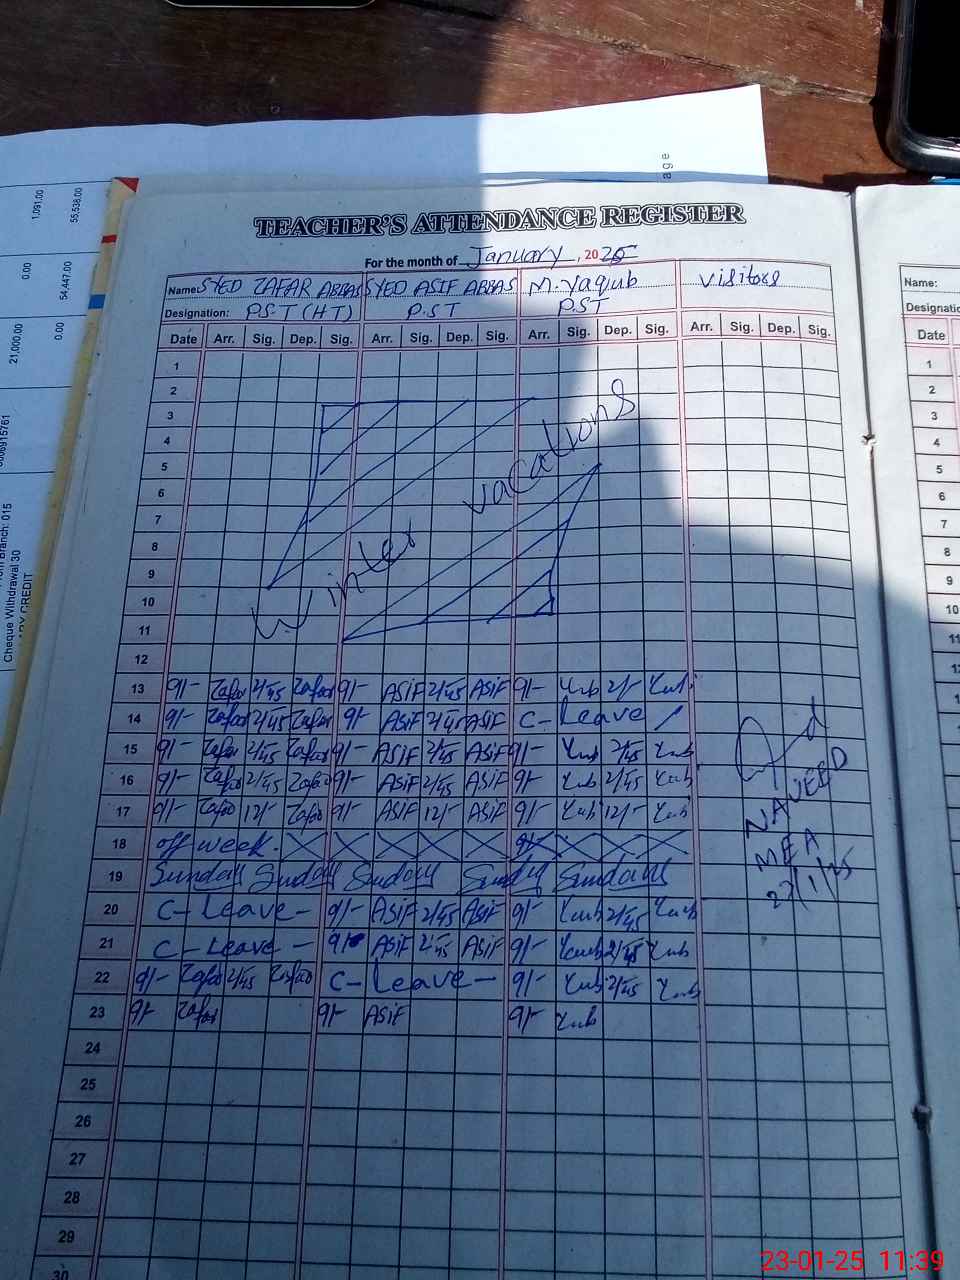 1,091.00
55,538.00
0.00
54,447.00
21,000.00
0.00
0006915761
Branch: 015
Cheque Withdrawal 30
CREDIT
age
TEACHER'S ATTENDANCE REGISTER
For the month of January, 2025
Name: SYED ZAFAR ABBAS SYED ASIF ABBAS M. Yaqub Visitors
Designation: P.S.T (HT) P.S.T P.S.T
Date Arr. Sig. Dep. Sig. Arr. Sig. Dep. Sig. Arr. Sig. Dep. Sig. Arr. Sig. Dep. Sig.
1
2
3
4
5
6
7
8
9
10
11
12
Winter vacations
13 9/- Zafar 2/45 Zafar 9/- ASIF 2/45 ASIF 9/- Yub 2/- Yub
14 9/- Zafar 2/45 Zafar 9/- ASIF 2/45 ASIF C- Leave
15 9/- Zafar 2/45 Zafar 9/- ASIF 2/45 ASIF 9/- Yub 2/45 Yub
16 9/- Zafar 2/45 Zafar 9/- ASIF 2/45 ASIF 9/- Yub 2/45 Yub
17 9/- Zafar 12/- Zafar 9/- ASIF 12/- ASIF 9/- Yub 12/- Yub
18 off week.
19 Sunday Sunday Sunday Sunday Sunday
20 C- Leave - 9/- ASIF 2/45 ASIF 9/- Yub 2/45 Yub
21 C- Leave - 9/- ASIF 2/45 ASIF 9/- Yub 2/45 Yub
22 9/- Zafar 2/45 Zafar C- Leave - 9/- Yub 2/45 Yub
23 9/- Zafar 9/- ASIF 9/- Yub
24
25
26
27
28
29
30
NAVEED
MEA
22/1/25
Name:
Designation
Date
1
2
3
4
5
6
7
8
9
10
11
23-01-25 11:39